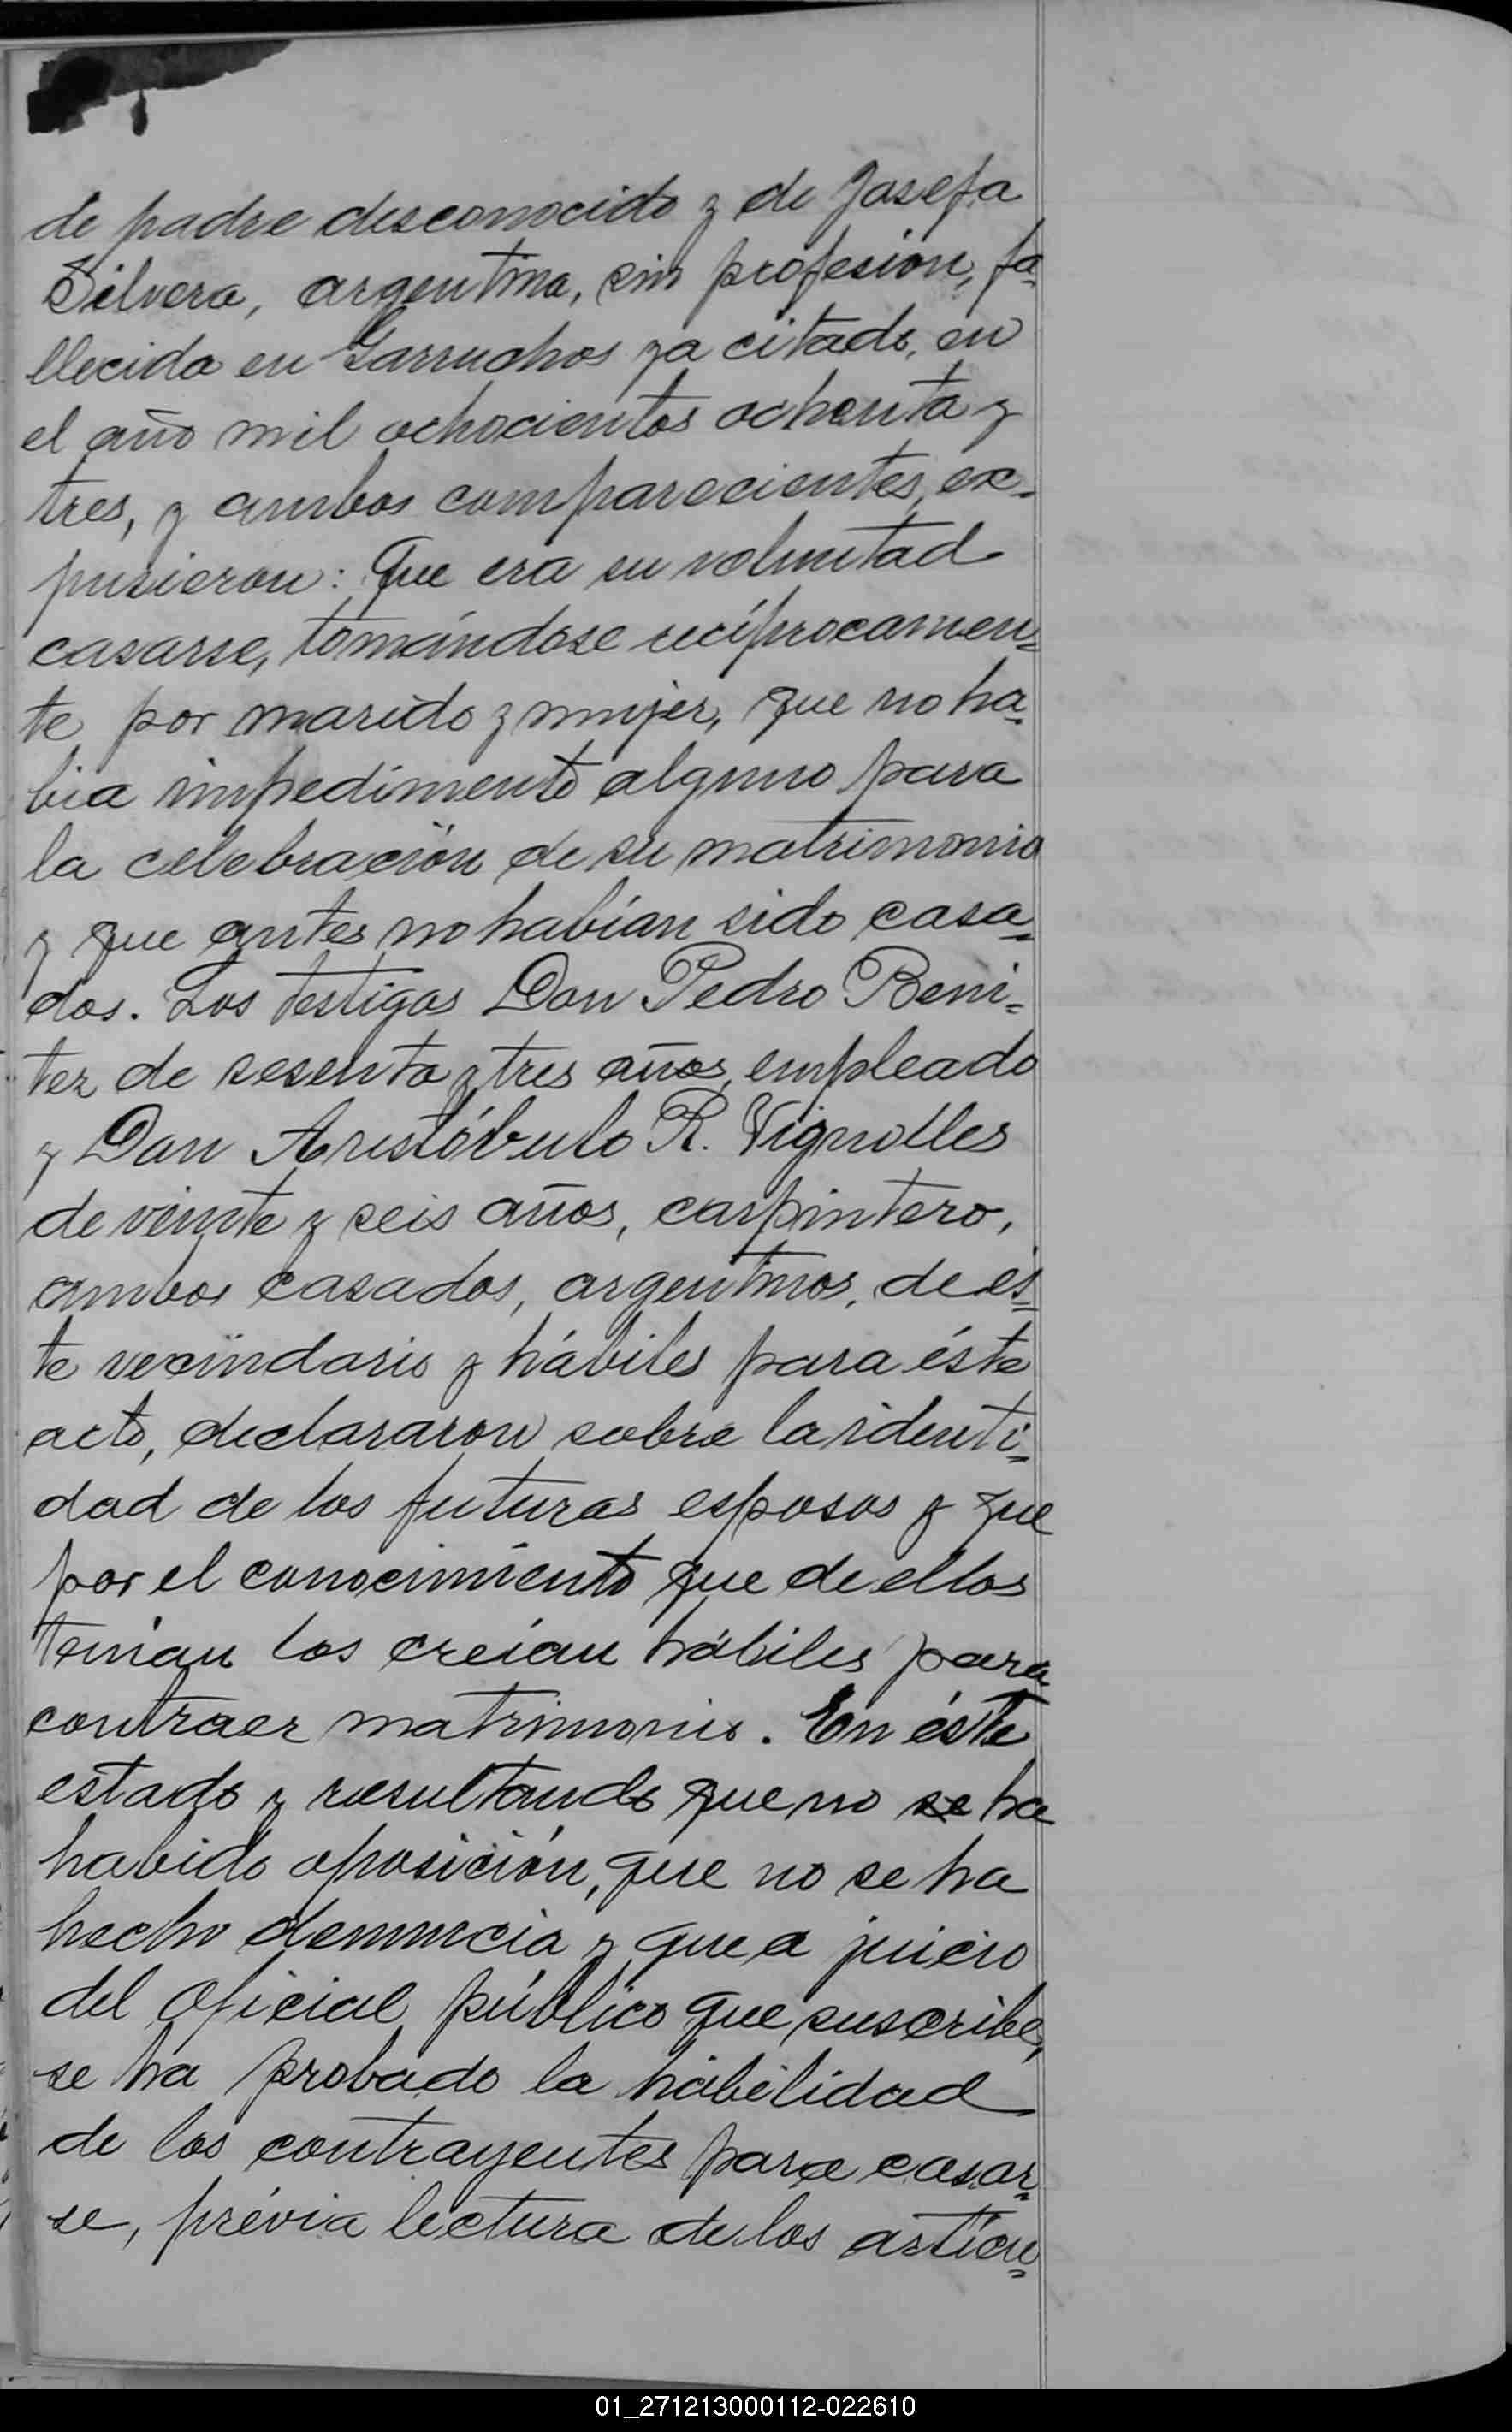 de padre desconocido y de Josefa
Silvera, argentina, sin profesión, fa-
llecida en Garruchos ya citado, en
el año mil ochocientos ochenta y
tres, y ambos comparecientes, ex-
pusieron: Que era su voluntad
casarse, tomándose recíprocamen=
te por marido y mujer, que no ha=
bia impedimento alguno para
la celebración de su matrimonio
y que antes no habían sido casa=
dos. Los testigos Don Pedro Beni=
tez de sesenta y tres años, empleado
y Don Aristóbulo R. Vignolles
de veinte y seis años, carpintero,
ambos casados, argentinos, de és=
te vecindario y hábiles para éste
acto, declararon sobre la identi=
dad de los futuros esposos y que
por el conocimiento que de ellos
tenían los creían hábiles para
contraer matrimonio. En éste
estado y resultando que no se ha
habido oposición, que no se ha
hecho denuncia y que a juicio
del oficial público que suscribe,
se ha probado la habilidad
de los contrayentes para casar=
se, prévia lectura de los artícu=
01_271213000112-022610